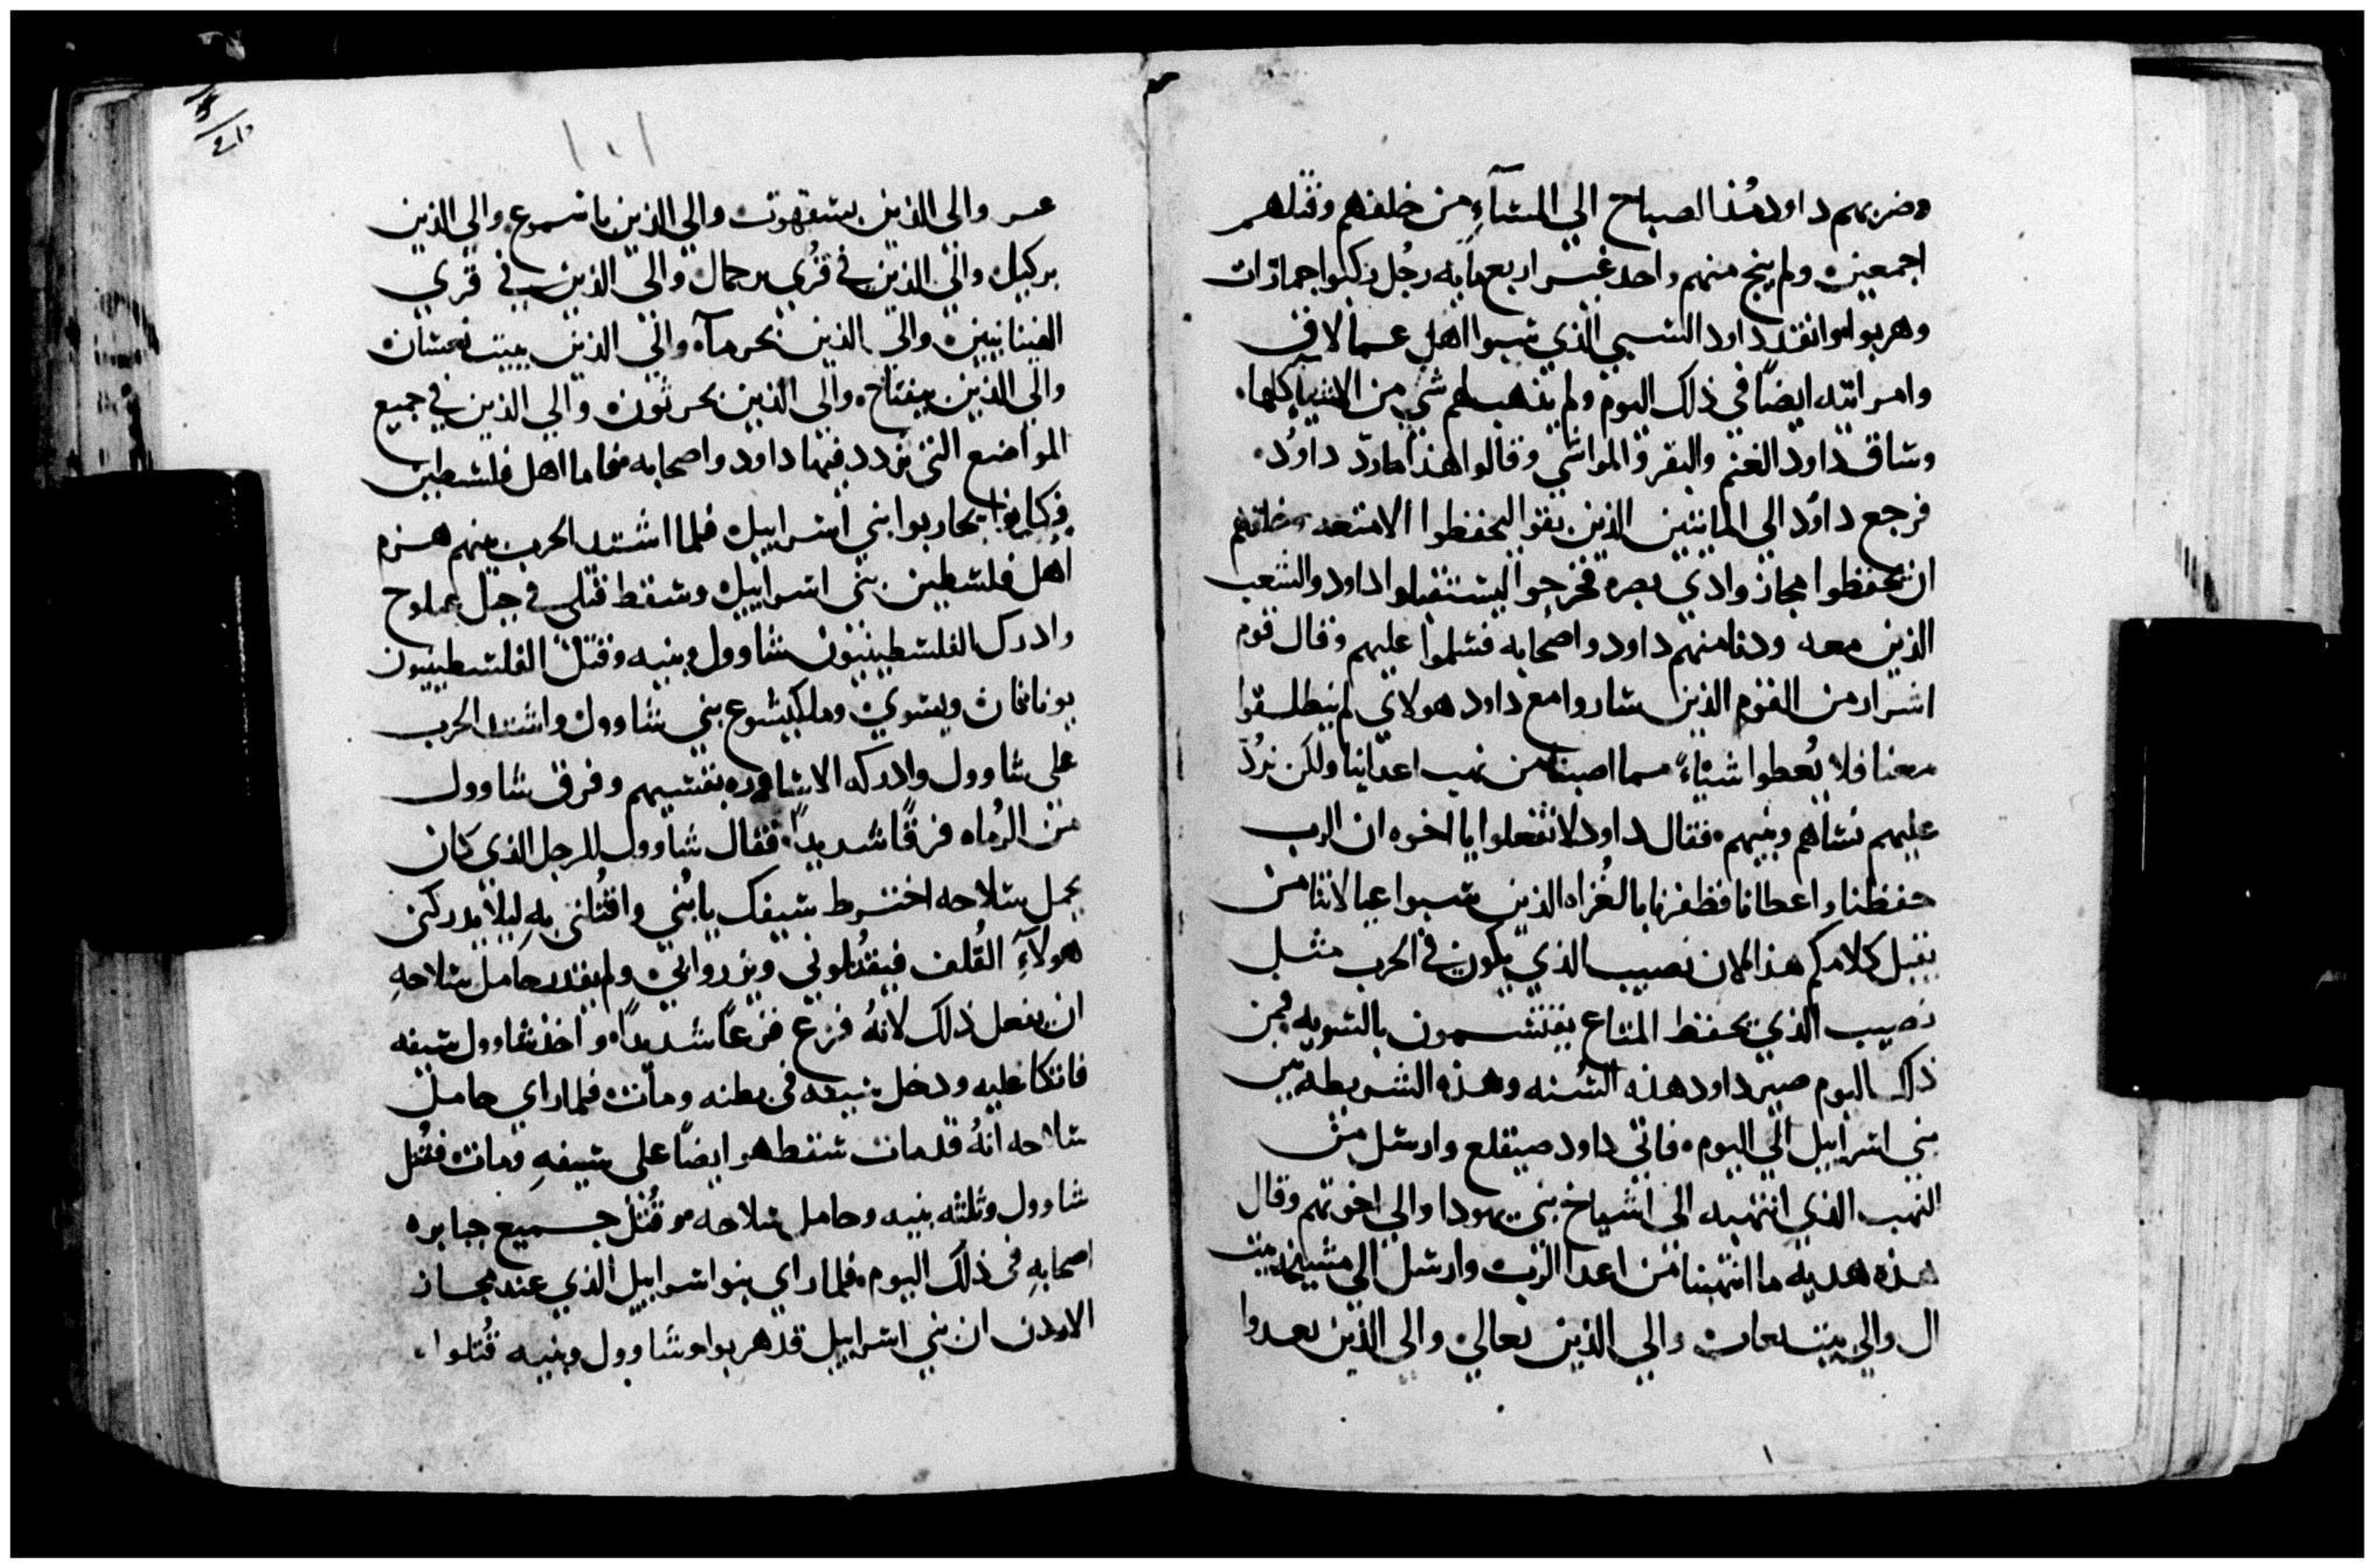 وضربهم داود منذ الصباح الي المسآءِ من خلفهم وقتلهم
اجمعين ولم ينج منهم واحد غير اربع مايه رجُل ركبوا جمازات
وهربوا وانقذ داود السبي الذي سبوا اهل عمالاق
وامراتيه ايضاً في ذلك اليوم ولم يذهب لهم شي من الاشيآ كلها
وساق داود الغنم والبقر والمواشي وقالوا هذا ما ردّ داوُد
فرجع داوُد الي المايتين الذين بقوا ليحفظوا الامتعه وخلفهم
ان يحفظوا مجاز وادي بصره فخرجوا ليستقبلوا داود والشعب
الذين معه ودنا منهم داود واصحابه فسلموا عليهم وقال قوم
اشرار من القوم الذين ساروا مع داود هولاي لم ينطلقوا
معنا فلا يُعطوا شياءً مما اصبنا من نهب اعداينا ولكن نرُدّ
عليهم نساهم وبنيهم فقال داود لا تفعلوا يا اخوه ان الرب
حفظنا واعطانا فظفرنا بالغُزاه الذين سبوا عيالاتنا من
يقبل كلامكم هذا لان نصيب الذي يكون في الحرب مثل
نصيب الذي يحفظ المتاع يقتسمون بالسويه فمن
ذلك اليوم صير داود هذه السُنه وهذه الشريطه بين
بني اسراييل الي اليوم فاتي داود صيقلع وارسل من
النهب الذي انتهبه الي اشياخ بني يهودا والي اخوتهم وقال
هذه هديه ما انتهبنا من اعدا الرب وارسل الي بيت
ال والي الذين والي الذين
والي الذين والي الذين والي الذين
والي الذين في قُري والي الذين في قري
والي الذين والي الذين
والي الذين والي الذين والي الذين في جميع
المواضع التي تردد فيها داود واصحابه فاما اهل فلسطين
فكانوا يحاربوا بني اسراييل فلما اشتد الحرب بينهم هزم
اهل فلسطين بني اسراييل وسقط قتلي في جبل جملوح
وادرك الفلسطينيون شاوول وبنيه وقتل الفلسطينيون
يوناثان ويسوي وملكيشوع بني شاوول واشتد الحرب
على شاوول وادركه بقسيهم وفرق شاوول
من الرُماه فرقاً شديداً فقال شاوول للرجل الذي كان
يحمل سلاحه اخترط سيفك يا بُني واقتُلني بهِ ليلا يدركني
هولآءِ القُلف فيقتُلوني ويزروا بي ولم يقدر حامل سلاحهِ
ان يفعل ذلك لانهُ فزع فزعاً شديداً واخذ شاوول سيفه
فاتكا عليه ودخل سيفه في بطنه ومات فلما راي حامل
سلاحه انهُ قد مات سقط هو ايضاً على سيفهِ ومات فقُتل
شاوول وثلثه بنيه وحامل سلاحه وقُتل جميع جبابره
اصحابهِ في ذلك اليوم فلما راي بنوا اسراييل الذي عند مجاز
الاردن ان بني اسراييل قد هربوا وشاوول وبنيه قُتلوا